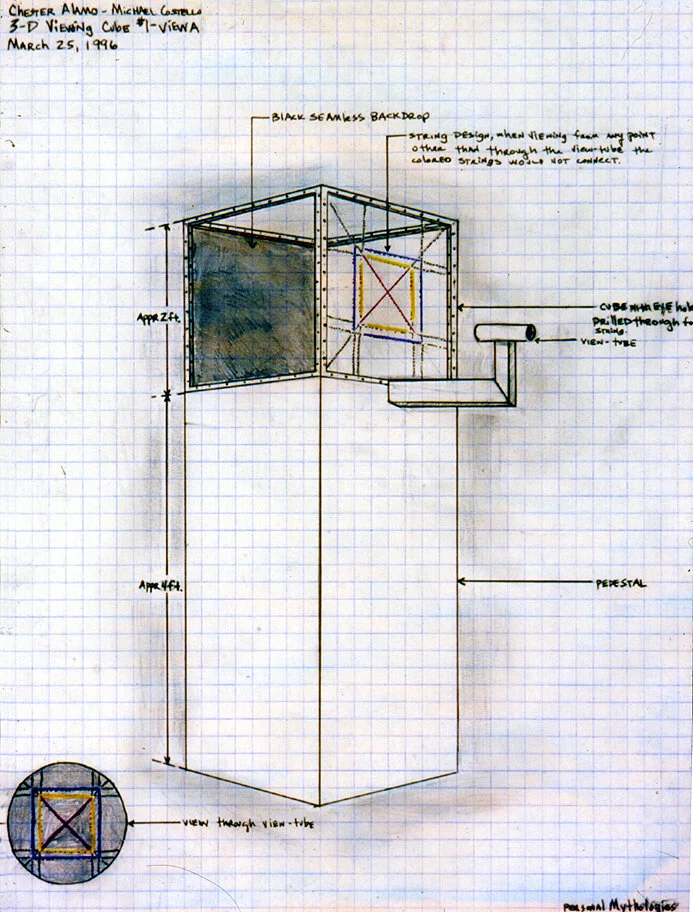 Chester Alamo - Michael Costello
3-D Viewing Cube #1-View A
March 25, 1996
BLACK SEAMLESS BACKDROP
STRING DESIGN, when viewing from any point
other than through the view-tube the
colored strings would not connect.
Appr. 2ft.
CUBE with EYE hole
Drilled through fo
string.
VIEW-TUBE
Appr. 4ft.
PEDESTAL
VIEW through VIEW-TUBE
Personal Mythologies